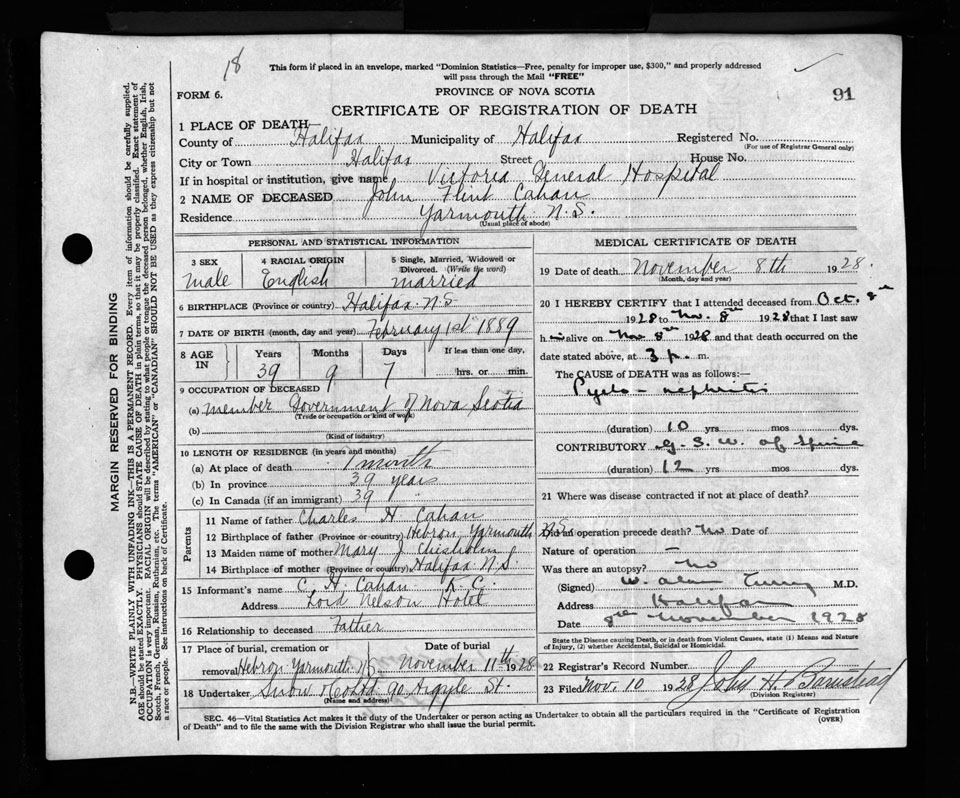 18
This form if placed in an envelope, marked "Dominion Statistics—Free, penalty for improper use, $300," and properly addressed
will pass through the Mail "FREE"
FORM 6.
PROVINCE OF NOVA SCOTIA
91
CERTIFICATE OF REGISTRATION OF DEATH
1 PLACE OF DEATH—
County of Halifax Municipality of Halifax Registered No.
(For use of Registrar General only)
City or Town Halifax Street House No.
If in hospital or institution, give name Victoria General Hospital
2 NAME OF DECEASED John Flint Cahan
Residence Yarmouth N.S.
(Usual place of abode)
PERSONAL AND STATISTICAL INFORMATION
3 SEX
male
4 RACIAL ORIGIN
English
5 Single, Married, Widowed or
Divorced. (Write the word)
married
6 BIRTHPLACE (Province or country) Halifax N.S
7 DATE OF BIRTH (month, day and year) February 1st 1889
8 AGE
IN
Years
39
Months
9
Days
7
If less than one day,
hrs. or min.
9 OCCUPATION OF DECEASED
(a) member Government of Nova Scotia
(Trade or occupation or kind of work)
(b)
(Kind of industry)
10 LENGTH OF RESIDENCE (in years and months)
(a) At place of death 1 month
(b) In province 39 years
(c) In Canada (if an immigrant) 39 "
Parents
11 Name of father Charles H Cahan
12 Birthplace of father (Province or country) Hebron Yarmouth N.S
13 Maiden name of mother Mary J Chisholm
14 Birthplace of mother (Province or country) Halifax N.S.
15 Informant's name C. H. Cahan K.C.
Address Lord Nelson Hotel
16 Relationship to deceased Father
17 Place of burial, cremation or
removal Hebron Yarmouth NS
Date of burial
November 11th 1928
18 Undertaker Snow & Co Ltd 90 Argyle St.
(Name and address)
MEDICAL CERTIFICATE OF DEATH
19 Date of death November 8th 1928.
(Month, day and year)
20 I HEREBY CERTIFY that I attended deceased from Oct. 8th
1928 to Nov. 8th 1928 that I last saw
him alive on Nov 8th 1928 and that death occurred on the
date stated above, at 3 p. m.
The CAUSE of DEATH was as follows:—
Pyelo-nephritis
(duration) 10 yrs mos dys.
CONTRIBUTORY G. S. W. of Spine
(duration) 12 yrs mos dys.
21 Where was disease contracted if not at place of death?
Did an operation precede death? No Date of
Nature of operation —
Was there an autopsy? No
(Signed) W. Alan Curry M.D.
Address Halifax
Date 8th November 1928
State the Disease causing Death, or in death from Violent Causes, state (1) Means and Nature
of Injury, (2) whether Accidental, Suicidal or Homicidal.
22 Registrar's Record Number
23 Filed Nov. 10 1928 John H. Barnstead
(Division Registrar)
SEC. 46—Vital Statistics Act makes it the duty of the Undertaker or person acting as Undertaker to obtain all the particulars required in the "Certificate of Registration
of Death" and to file the same with the Division Registrar who shall issue the burial permit.
(OVER)
MARGIN RESERVED FOR BINDING
N.B.—WRITE PLAINLY WITH UNFADING INK—THIS IS A PERMANENT RECORD. Every item of information should be carefully supplied.
AGE should be stated EXACTLY. PHYSICIANS should STATE CAUSE OF DEATH in plain terms, so that it may be properly classified. Exact statement of
OCCUPATION is very important. RACIAL ORIGIN will be described by stating to what people or tongue the deceased person belonged, whether English, Irish,
Scotch, French, German, Russian, Ruthenian, etc. The terms "AMERICAN" or "CANADIAN" SHOULD NOT BE USED as they express citizenship but not
a race or people. See instructions on back of Certificate.